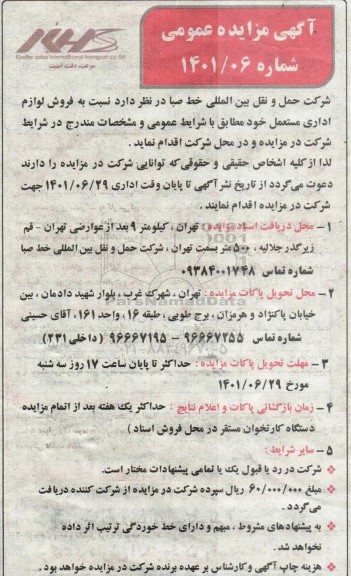 آگهی مزایده عمومی
شماره ۱۴۰۱/۰۶
KHS
Khatte saba international transport co.ltd
سرعت، دقت، امنیت
شرکت حمل و نقل بین المللی خط صبا در نظر دارد نسبت به فروش لوازم
اداری مستعمل خود مطابق با شرایط عمومی و مشخصات مندرج در شرایط
شرکت در مزایده و در محل شرکت اقدام نماید .
لذا از کلیه اشخاص حقیقی و حقوقی که توانایی شرکت در مزایده را دارند
دعوت می گردد از تاریخ نشر آگهی تا پایان وقت اداری ۱۴۰۱/۰۶/۲۹ جهت
شرکت در مزایده اقدام نمایند .
۱ - محل دریافت اسناد مزایده : تهران ، کیلومتر ۹ بعد از عوارضی تهران - قم
زیرگذر جلالیه ، ۵۰۰ متر بسمت تهران ، شرکت حمل و نقل بین المللی خط صبا
شماره تماس ۰۹۳۸۴۰۰۱۷۴۸
۲ - محل تحویل پاکات مزایده : تهران ، شهرک غرب ، بلوار شهید دادمان ، بین
خیابان پاکنژاد و هرمزان ، برج طوبی ، طبقه ۱۶ ، واحد ۱۶۱ ، آقای حسینی
شماره تماس ۹۶۶۶۷۲۵۵ - ۹۶۶۶۷۱۹۵ (داخلی ۲۳۱)
ParsNamadData
۳ - مهلت تحویل پاکات مزایده : حداکثر تا پایان ساعت ۱۷ روز سه شنبه
مورخ ۱۴۰۱/۰۶/۲۹
۴ - زمان بازگشائی پاکات و اعلام نتایج : حداکثر یک هفته بعد از اتمام مزایده
دستگاه کارتخوان مستقر در محل فروش اسناد )
۵ - سایر شرایط :
شرکت در رد یا قبول یک یا تمامی پیشنهادات مختار است.
مبلغ ۶۰/۰۰۰/۰۰۰ ریال سپرده شرکت در مزایده از شرکت کننده دریافت
می گردد .
به پیشنهادهای مشروط ، مبهم و دارای خط خوردگی ترتیب اثر داده
نخواهد شد .
هزینه چاپ آگهی و کارشناس بر عهده برنده شرکت در مزایده خواهد بود .